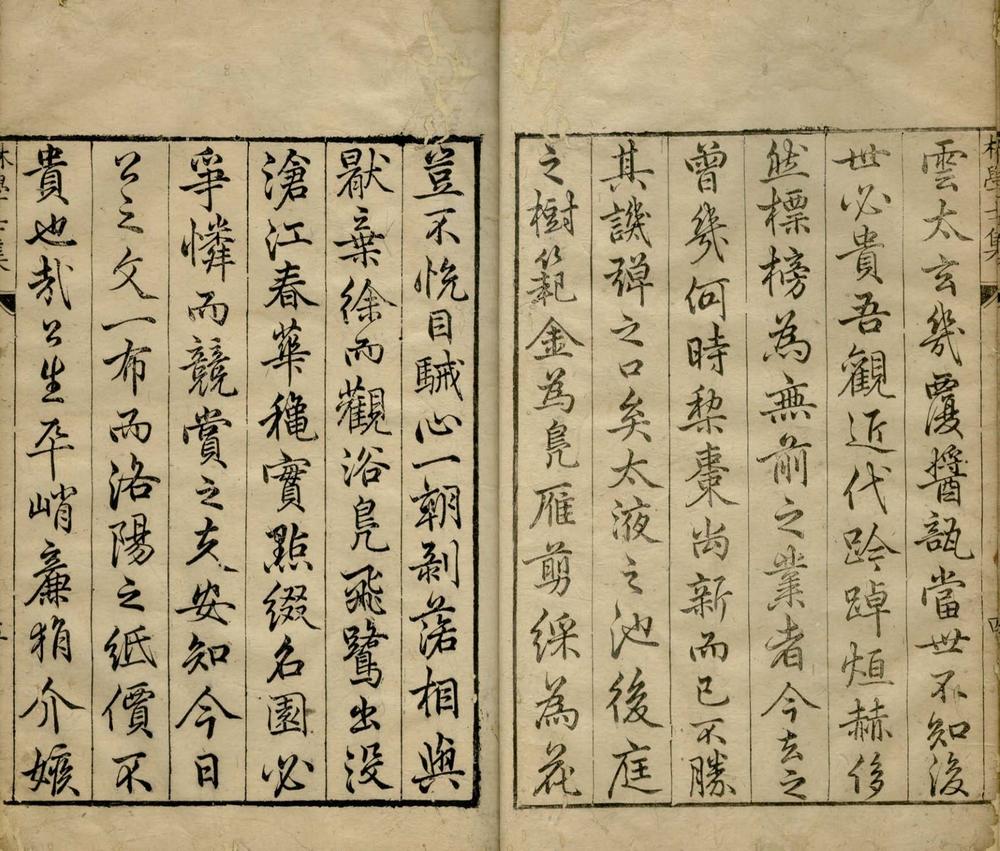 雲太玄幾覆醬瓿當世不知後
世必貴吾觀近代跨踔烜赫侈
然標榜為無前之業者今去之
曾幾何時梨棗尚新而已不勝
其譏彈之口矣太液之池後庭
之樹範金為鳧雁剪綵為花
豈不悅目駴心一朝剝落相與
厭棄徐而觀浴鳧飛鷺出没
滄江春華穐實點綴名園必
爭憐而競賞之夫安知今日
公之文一布而洛陽之紙價不
貴也哉公生平峭廉狷介嫉